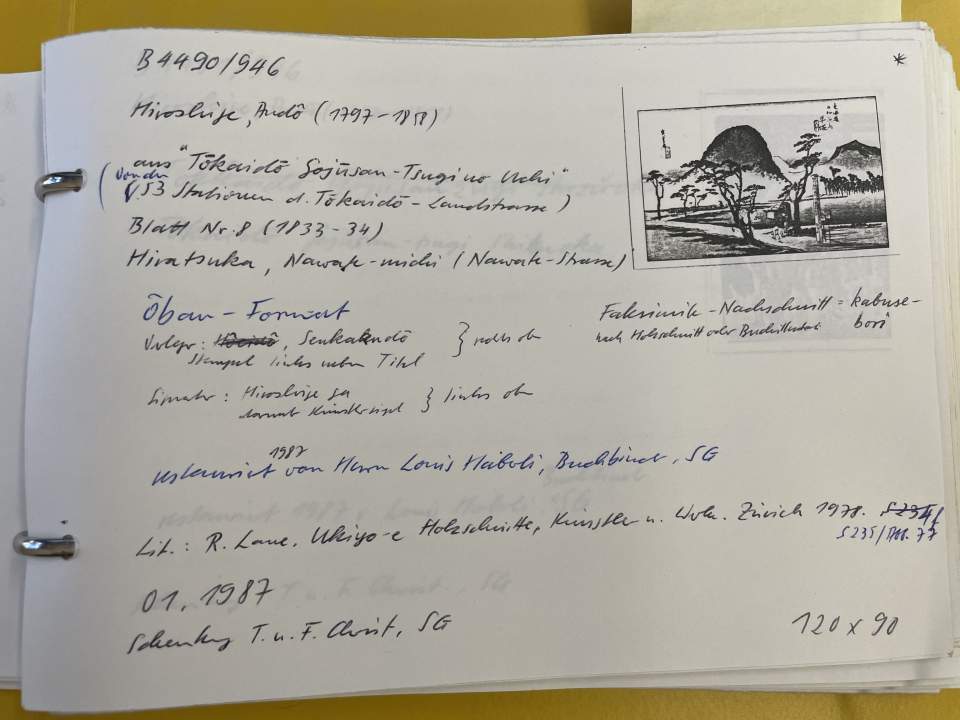 B4490/946
*
Hiroshige, Andō (1797-1858)
aus "Tōkaidō Gojūsan-Tsugi no Uchi"
(von den
53 Stationen d. Tōkaidō-Landstrasse)
Blatt Nr. 8 (1833-34)
Hiratsuka, Nawate-michi (Nawate-Strasse)
Ōban-Format
Verleger: Senkakudō } rechts ob
Stempel links neben Titel
Signatur: Hiroshige ga } links ob
darunter Künstlersiegel
Faksimile-Nachschnitt = kabuse-
nach Holzschnitt oder Buchillustrat. bori
1987
restauriert von Herrn Louis Häberli, Buchbinder, SG
Lit.: R. Lane, Ukiyo-e Holzschnitte, Künstler u. Werk. Zürich 1978.
S235/Abb. 77
01. 1987
Schenkung T. u. F. Christ, SG
120 x 90